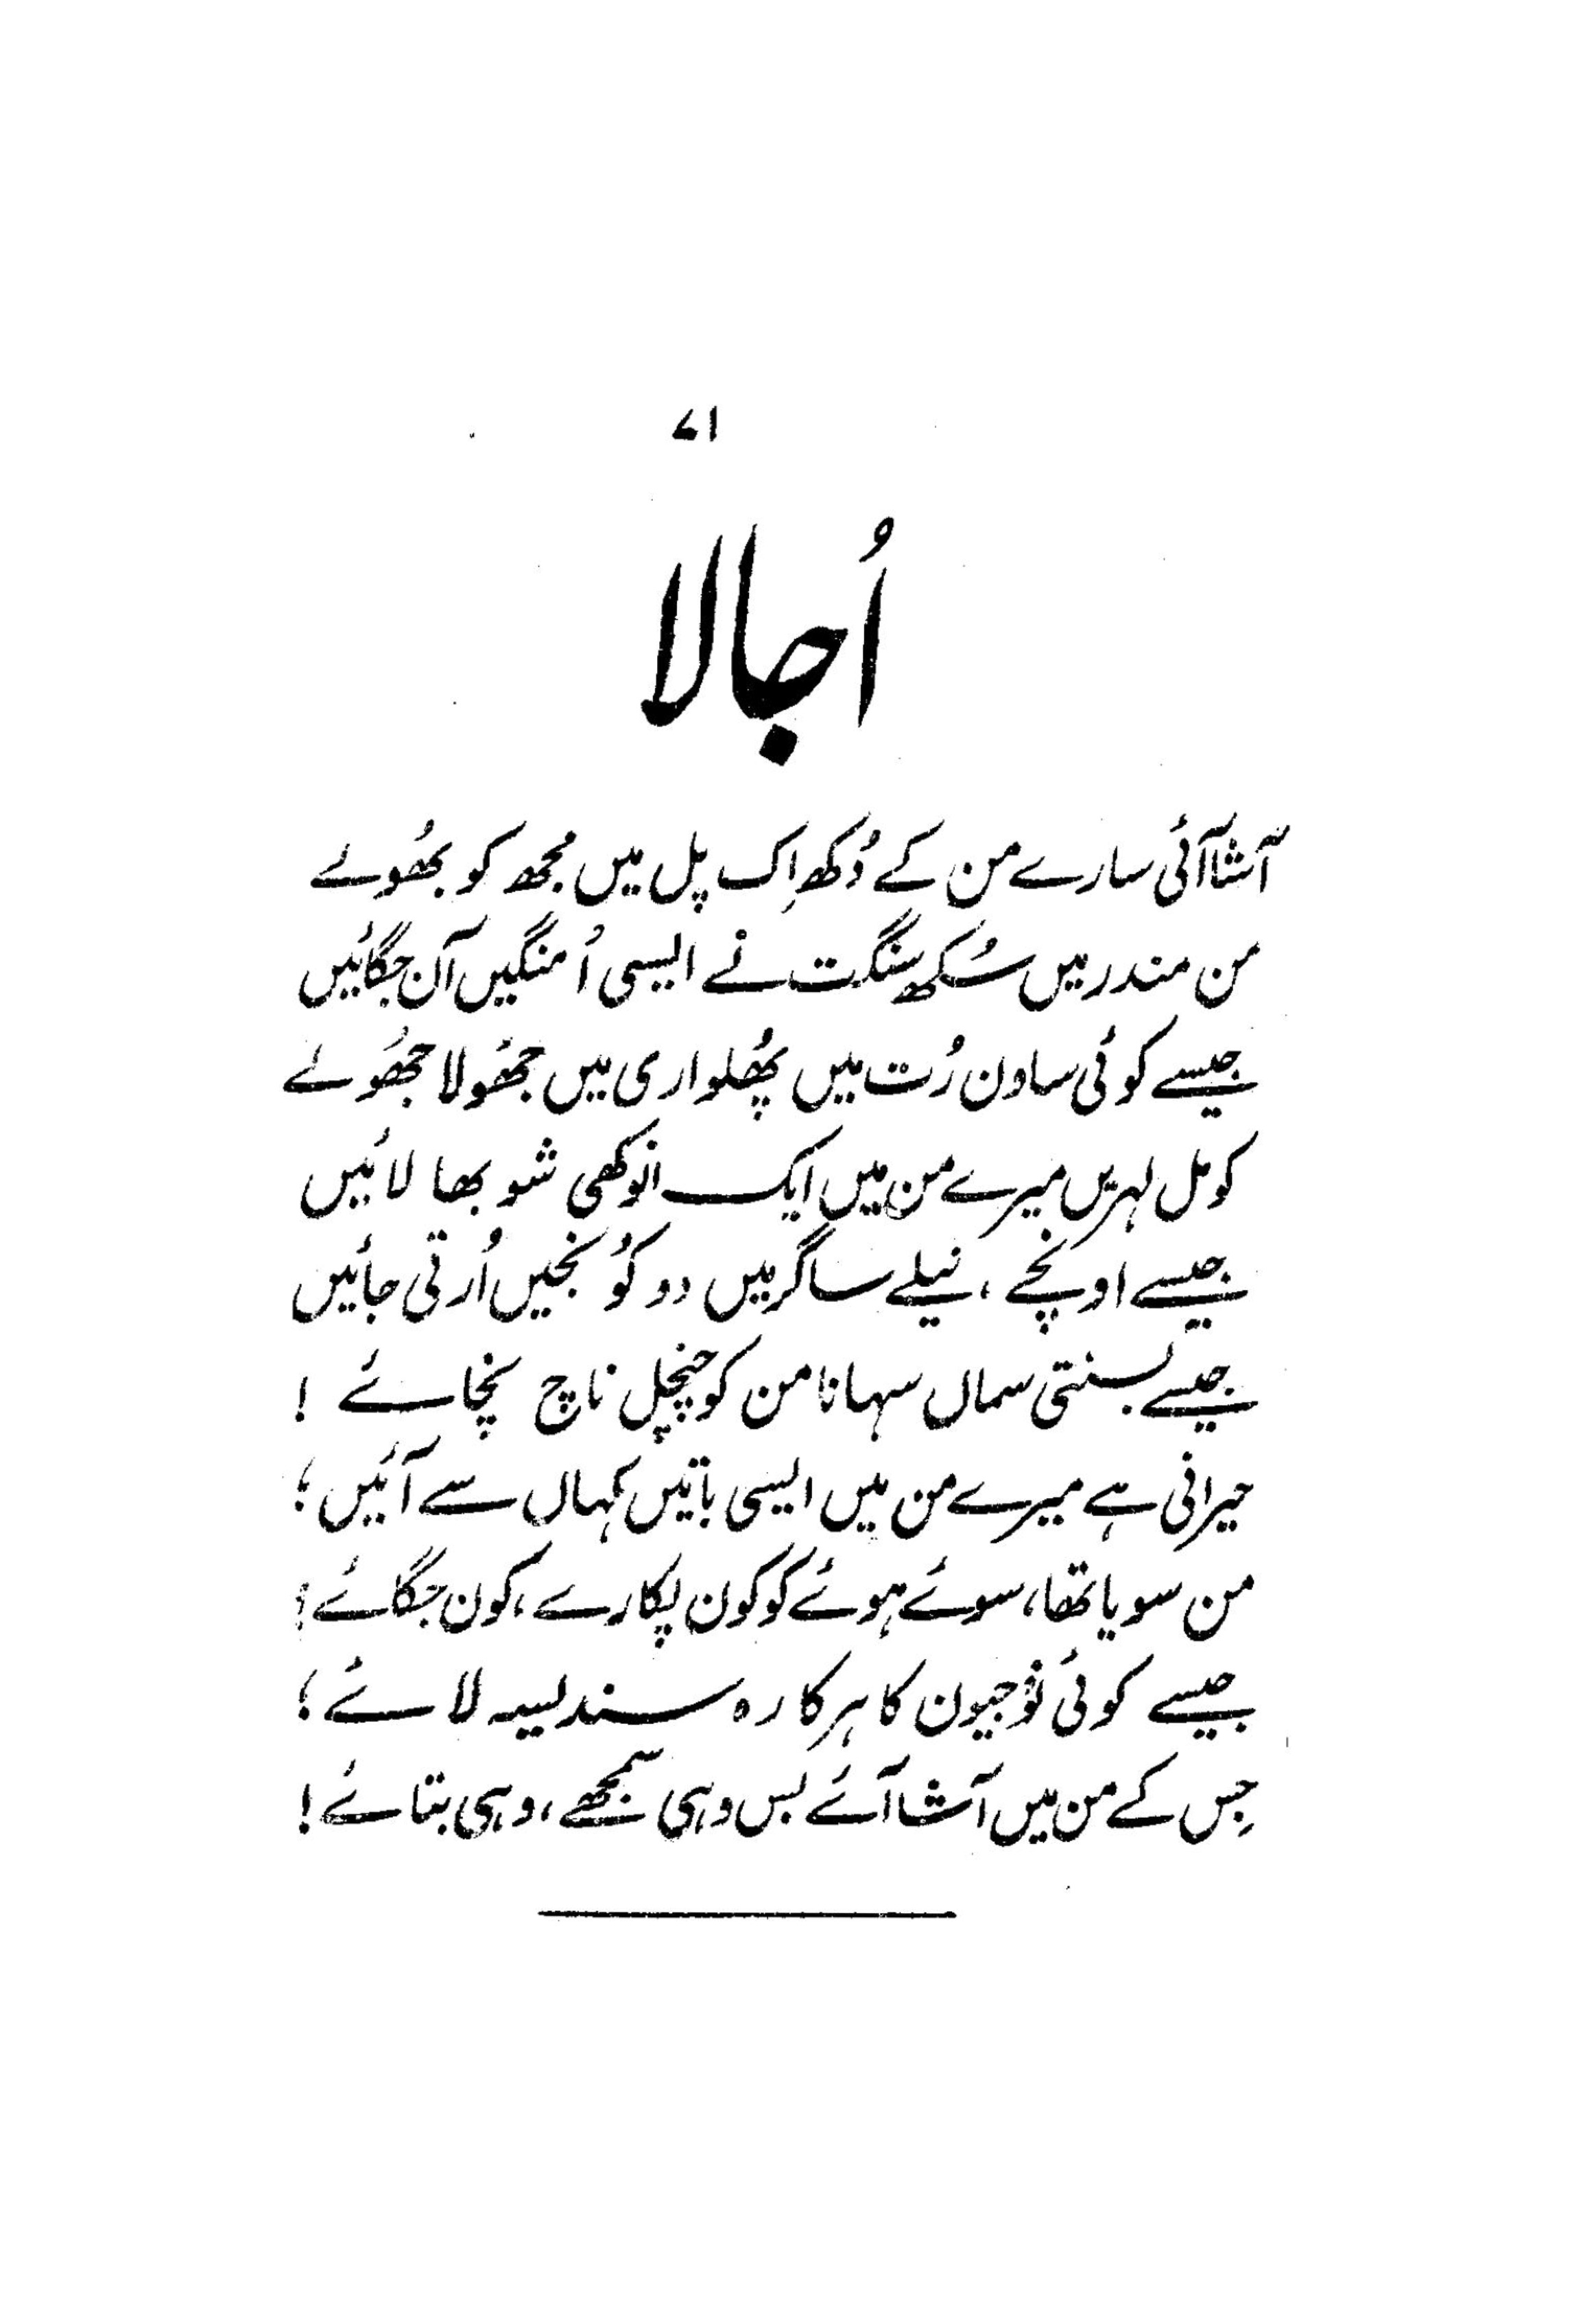 ۷۱
اُجالا
آشا آئی سارے من کے دُکھ اِک پل میں مُجھ کو بھُولے
من مندر میں سُکھ سنگت نے ایسی اُمنگیں آن جگائیں
جیسے کوئی ساون رُت میں پھُلواری میں جھُولا جھُولے
کومل لہریں میرے من میں ایک انوکھی شوبھا لائیں
جیسے اونچے، نیلے ساگر میں دو کُونجیں اُڑتی جائیں
جیسے بسنتی سماں سہانا من کو چنچل ناچ نچائے!
حیرانی ہے میرے من میں ایسی باتیں کہاں سے آئیں؛
من سویا تھا، سوئے ہوئے کو کون پکارے، کون جگائے؛
جیسے کوئی نَوجیون کا ہرکارہ سندیسہ لائے؛
جِس کے من میں آشا آئے بس وہی سمجھے، وہی بتائے!